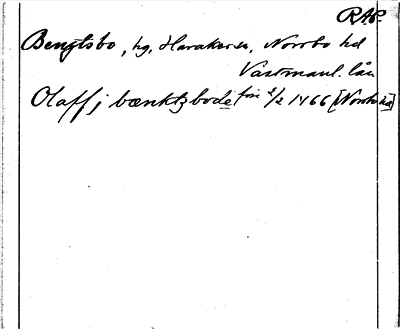 RAP.
Bengtsbo, hg, Harakers sn, Norrbo hd
Västmanl. län
Olaff j bænktzbode fore 2/2 1466 [Norrbo hd]